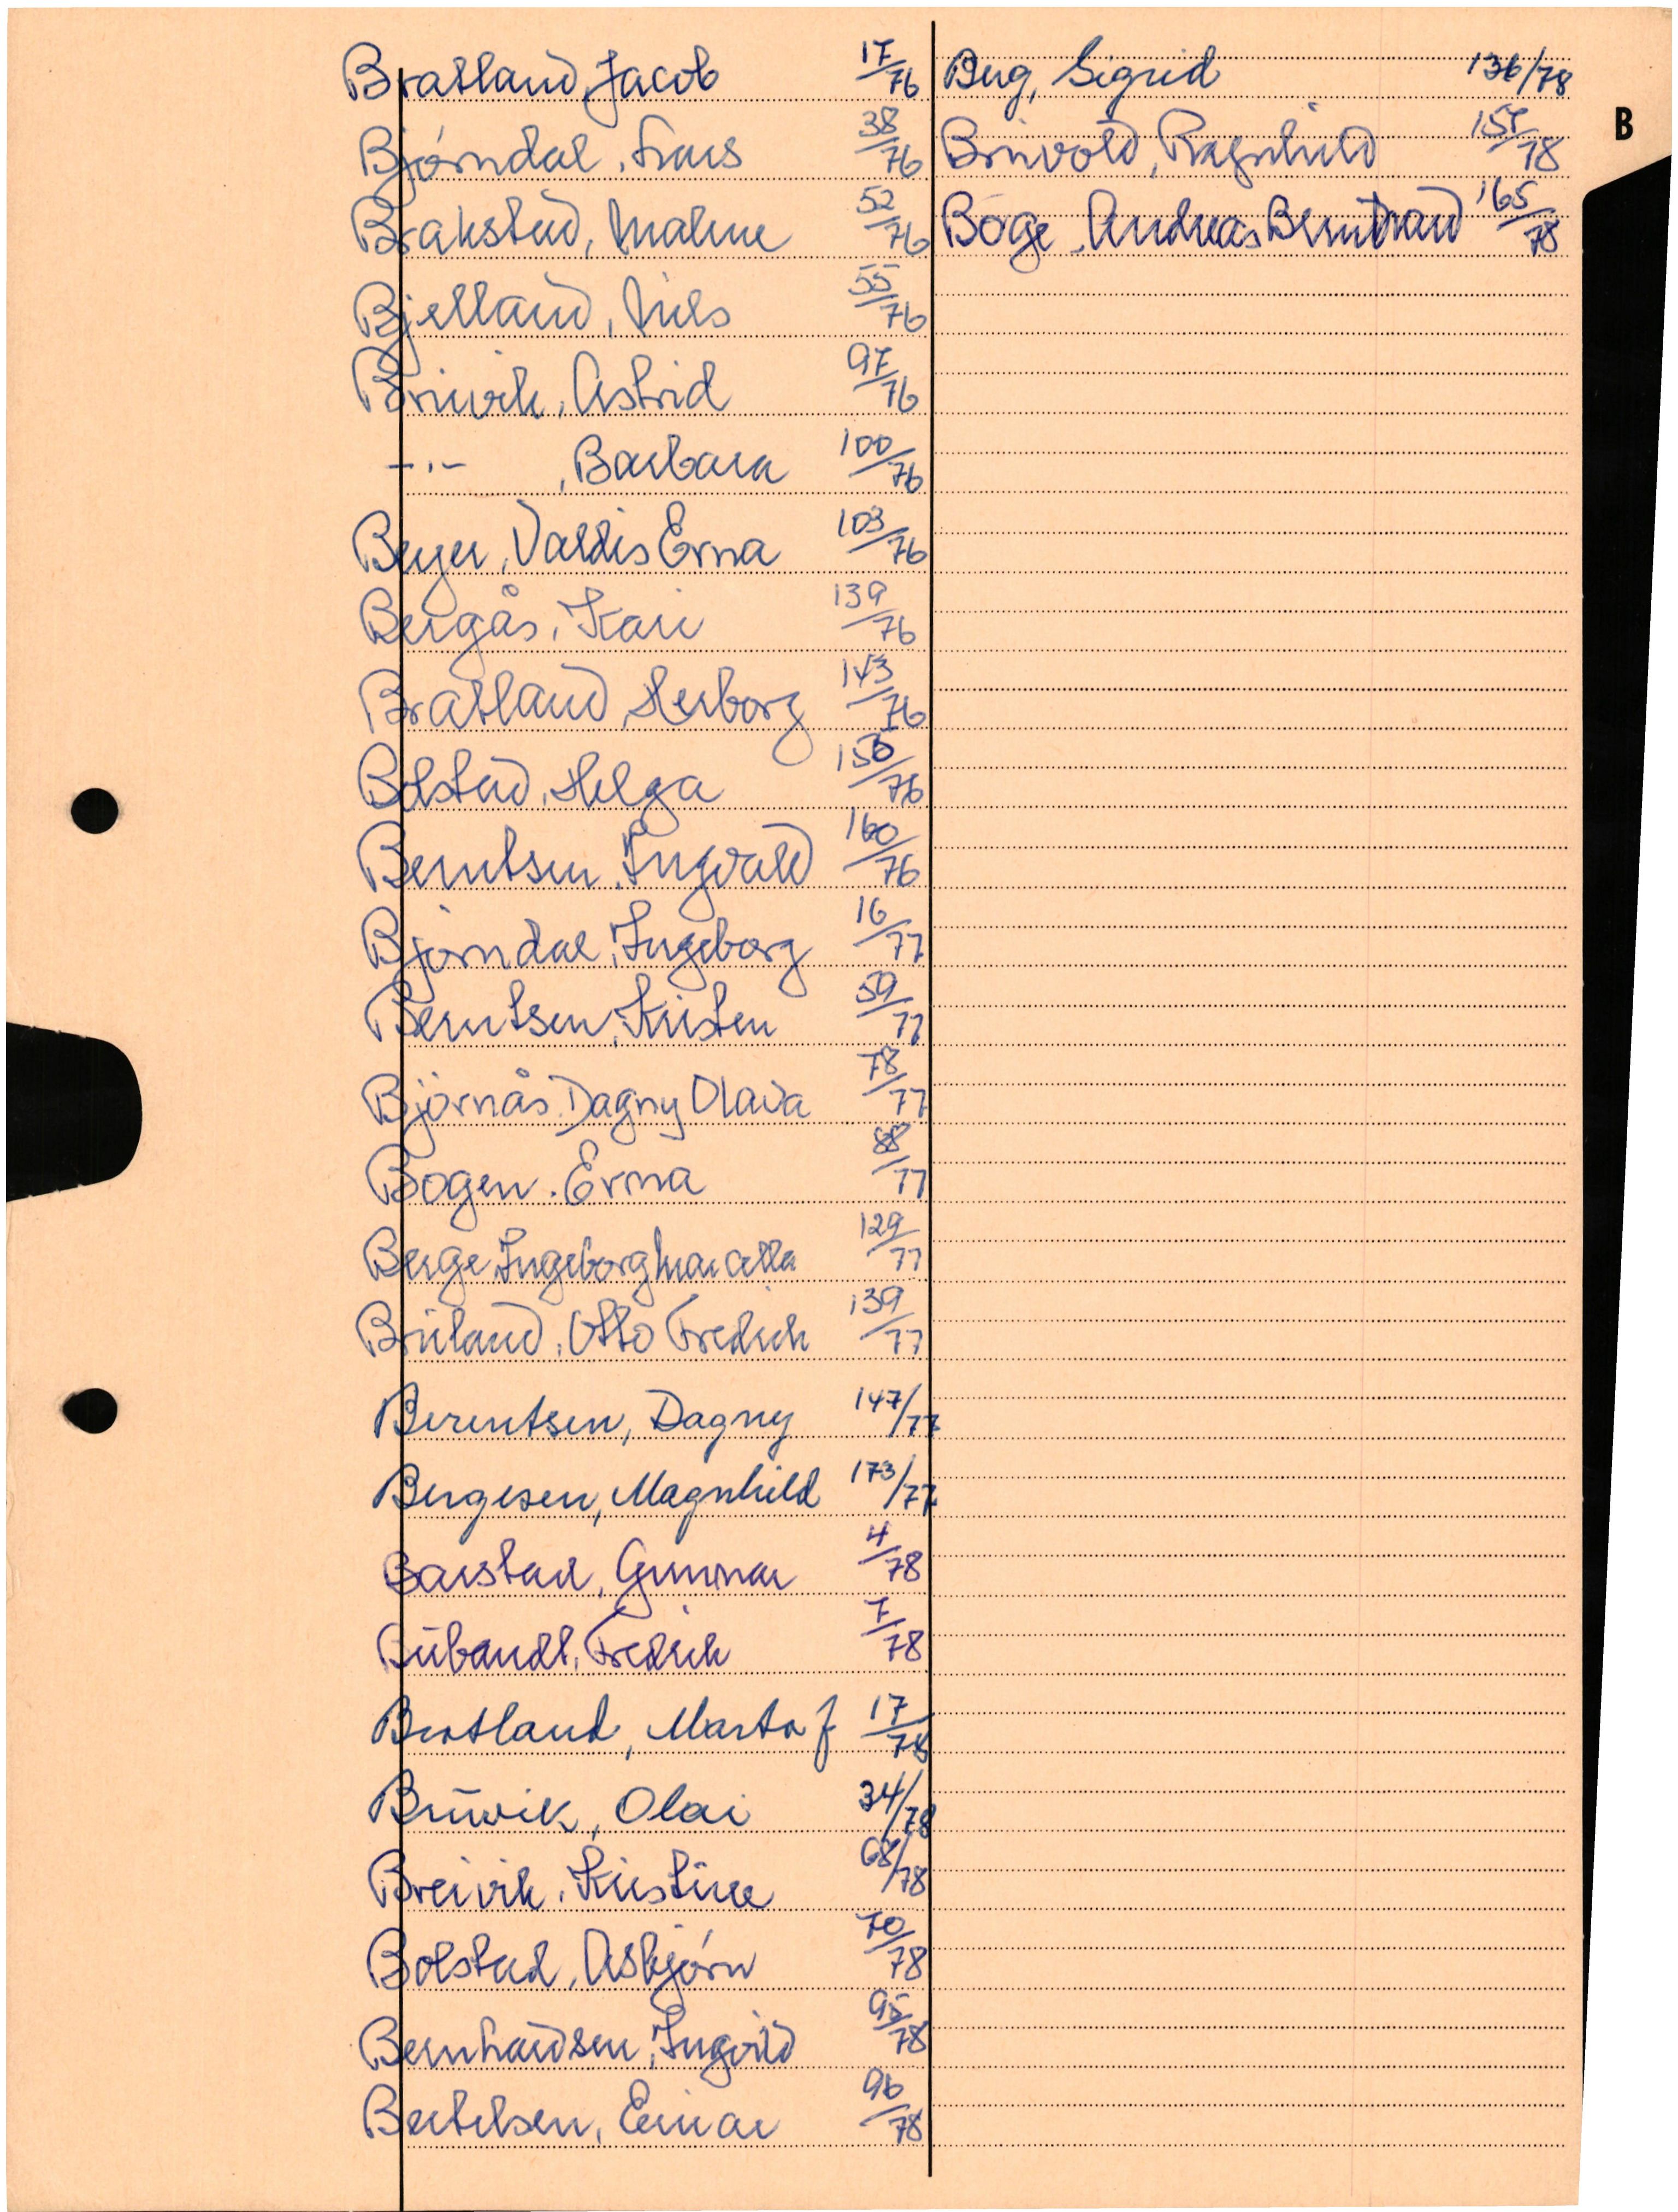 Bratland, Jacob 17/76
Bjørndal, Lars 38/76
Brakstad, Malene 52/76
Bjelland, Nils 55/76
Breivik, Astrid 97/76
-"- , Barbara 100/76
Beyer, Valdis Erna 103/76
Bergås, Kari 139/76
Bratland, Herborg 143/76
Bolstad, Helga 156/76
Berntsen, Ingvald 160/76
Bjørndal, Ingeborg 16/77
Berntsen, Kristen 59/77
Bjørnås, Dagny Olava 78/77
Bogen, Erna 88/77
Berge, Ingeborg Marcella 129/77
Breiland, Otto Fredrik 139/77
Berentsen, Dagny 147/77
Bergesen, Magnhild 173/77
Barstad, Gunnar 4/78
Fredrik 7/78
Bratland, Marta J 17/78
Breivik, Olai 34/78
Breivik, Kristine 68/78
Bolstad, Asbjørn 70/78
Bernhardsen, Ingvild 95/78
Bertelsen, Einar 96/78
Berg, Sigrid 136/78
Breivold, Ragnhild /78
Bøge, Andreas Berntrand 165/78
B